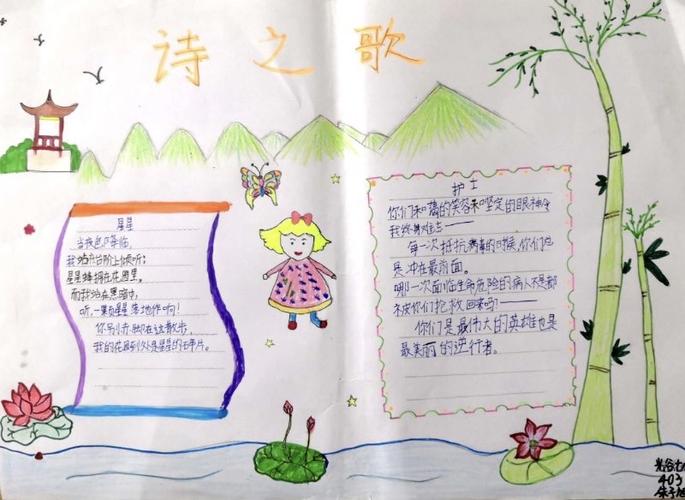 诗之歌
星星
当夜色降临,
我站在台阶上倾听;
星星蜂拥在花园里
而我站在黑暗中。
听,一颗星星落地作响!
你别赤脚在这散步,
我的花园到处是星星的碎片。
护士
你们和蔼的笑容和坚定的眼神令
我终身难忘——
每一次抵抗病毒的时候,你们总
是冲在最前面。
哪一次面临生命危险的病人不是都
被你们抢救回来吗?
你们是最伟大的英雄也是
最美丽的逆行者。
光谷
403